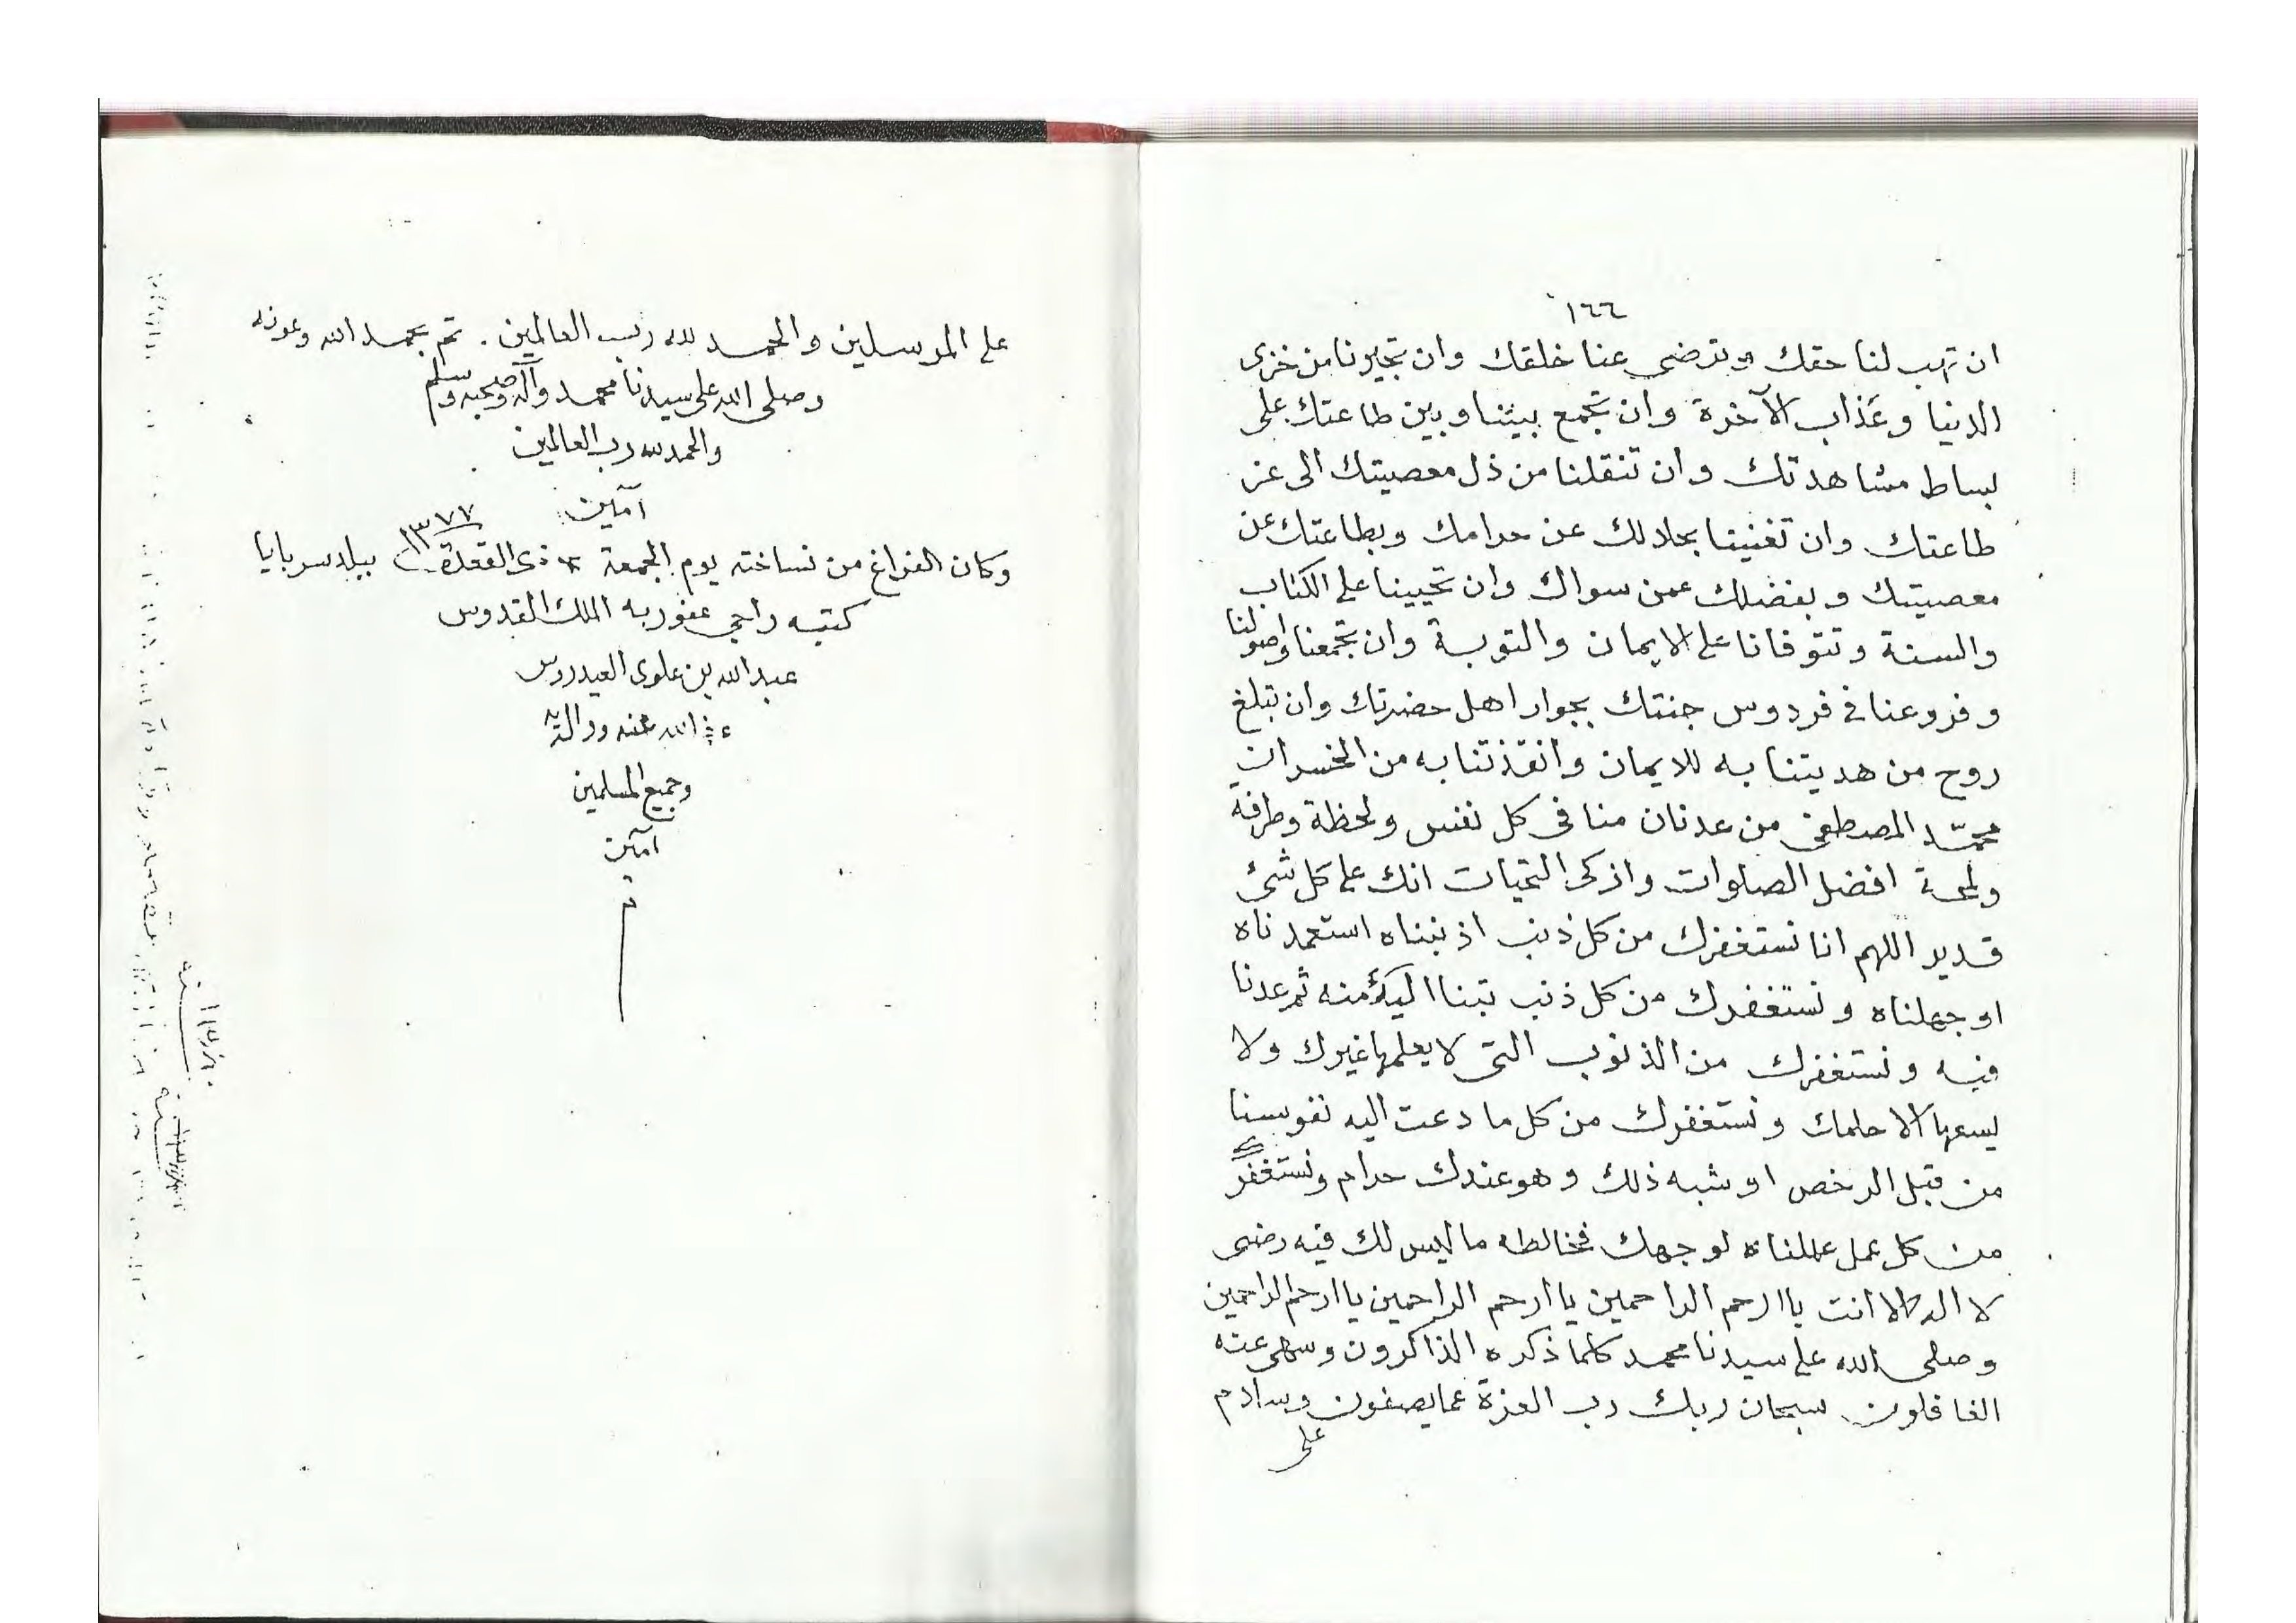 ١٦٦
ان تهب لنا حقك وترضي عنا خلقك وان تجيرنا من خزى
الدنيا وعذاب الآخرة وان تجمع بيننا وبين طاعتك على
بساط مشاهدتك وان تنقلنا من ذل معصيتك الى عز
طاعتك وان تغنينا بحلالك عن حرامك وبطاعتك عن
معصيتك وبفضلك عمن سواك وان تحيينا على الكتاب
والسنة وتتوفانا على الايمان والتوبة وان تجمعنا واصولنا
وفروعنا في فردوس جنتك بجوار اهل حضرتك وان تبلغ
روح من هديتنا به للايمان وانقذتنا به من الخسران
محمّد المصطفى من عدنان منا في كل نفس ولحظة وطرفة
ولمحة افضل الصلوات وازكى التحيات انك على كل شئ
قدير اللهم انا نستغفرك من كل ذنب اذنبناه استعمدناه
او جهلناه ونستغفرك من كل ذنب تبنا اليك منه ثم عدنا
فيه ونستغفرك من الذنوب التى لا يعلمها غيرك ولا
يسعها الا حلمك ونستغفرك من كل ما دعت اليه نفوسنا
من قبل الرخص او شبه ذلك وهو عندك حرام ونستغفرك
من كل عمل عملناه لوجهك فخالطه ما ليس لك فيه رضى
لا اله الا انت يا ارحم الراحمين يا ارحم الراحمين يا ارحم الراحمين
وصلى الله على سيدنا محمد كلما ذكره الذاكرون وسهى عنه
الغافلون سبحان ربك رب العزة عما يصفون وسلام
على
على المرسلين والحمد لله رب العالمين . تم بحمد الله وعونه
وصلى الله على سيدنا محمد وآله وصحبه وسلم
والحمد لله رب العالمين
آمين
وكان الفراغ من نساخته يوم الجمعة ذى القعدة ١٣٧٧ ببلد سربايا
كتبه راجي عفو ربه الملك القدوس
عبد الله بن علوى العيدروس
الله عنه ووالديه
وجميع المسلمين
آمين